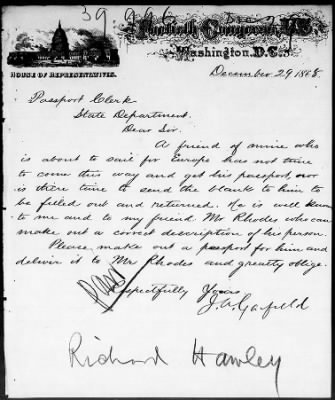 39996
Fortieth Congress, U.S.
Washington, D.C.
HOUSE OF REPRESENTATIVES.
December 29 1868.
Passport Clerk
State Department.
Dear Sir.
A friend of mine who
is about to sail for Europe has not time
to come this way and get his passport, nor
is there time to send the blank to him to
be filled out and returned. He is well known
to me and to my friend Mr Rhodes who can
make out a correct description of his person.
Please make out a passport for him and
deliver it to Mr Rhodes and greatly oblige.
Respectfully Yours
J. A. Garfield
Richard Hawley